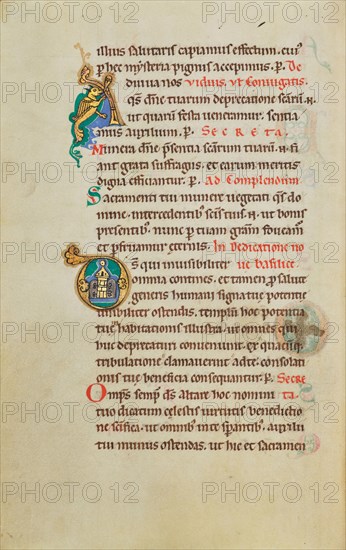 illius salutaris capiamus effectum. cui9
p hec mysteria pignus accepimus. P. De
diuina nos Viduis. ul Coniugatis.
Qs. dne tuarum deprecatione scarũ. N.
ut quarũ festa ueneramur. sentia
mus auxilium. P. Secreta.
Munera dne psentia scarum tuarũ. N. fi
ant grata suffragiis. et earum meritis
digna efficiantur. P. Ad Complendum.
Sacramenti tui munere uegetati qs do
mine. intercedentib; scis tuis. N. ut bonis
presentib;. nunc p tuam gram foueam
et pfruamur eternis. In Dedicatione no
Ds qui inuisibiliter ue basilice
omnia contines. et tamen p salute
generis humani signa tue potentie
uisibiliter ostendis. templũ hoc potentia
tue habitationis illustra. ut omnes qui
huc deprecaturi conueniunt. ex quacuq;
tribulatione clamauerint ad te. consolati
onis tue beneficia consequantur. P. Secre
Omps semp ds. altare hoc nomini ta.
tuo dicatum celestis uirtutis benedictio
ne scifica. ut omnib; in te spantib;. auxilii
tui munus ostendas. ut hic et sacramen
PHOTO 12